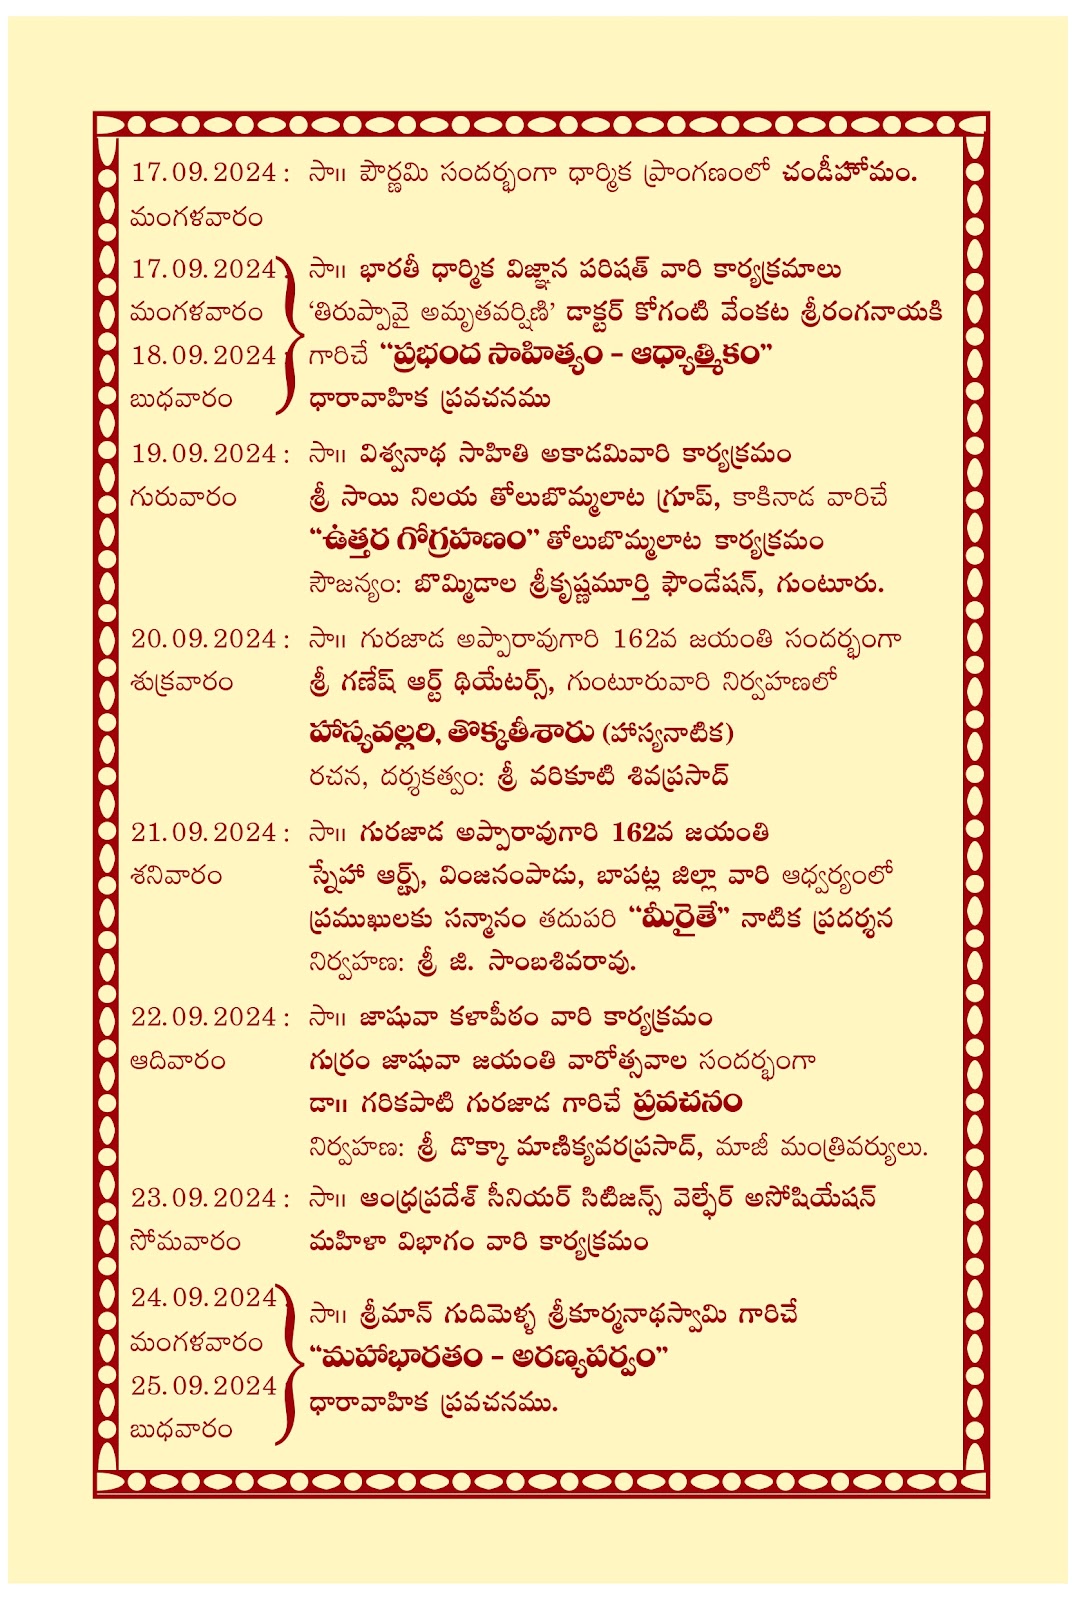 17.09.2024 : సా॥ పౌర్ణమి సందర్భంగా ధార్మిక ప్రాంగణంలో చండీహోమం.
మంగళవారం
17.09.2024 : సా॥ భారతీ ధార్మిక విజ్ఞాన పరిషత్ వారి కార్యక్రమాలు
మంగళవారం ‘తిరుప్పావై అమృతవర్షిణి’ డాక్టర్ కోగంటి వేంకట శ్రీరంగనాయకి
18.09.2024 : గారిచే “ప్రభంద సాహిత్యం - ఆధ్యాత్మికం”
బుధవారం ధారావాహిక ప్రవచనము
19.09.2024 : సా॥ విశ్వనాథ సాహితి అకాడమివారి కార్యక్రమం
గురువారం శ్రీ సాయి నిలయ తోలుబొమ్మలాట గ్రూప్, కాకినాడ వారిచే
“ఉత్తర గోగ్రహణం” తోలుబొమ్మలాట కార్యక్రమం
సౌజన్యం: బొమ్మిడాల శ్రీకృష్ణమూర్తి ఫౌండేషన్, గుంటూరు.
20.09.2024 : సా॥ గురజాడ అప్పారావుగారి 162వ జయంతి సందర్భంగా
శుక్రవారం శ్రీ గణేష్ ఆర్ట్ థియేటర్స్, గుంటూరువారి నిర్వహణలో
హాస్యవల్లరి, తొక్కతీశారు (హాస్యనాటిక)
రచన, దర్శకత్వం: శ్రీ వరికూటి శివప్రసాద్
21.09.2024 : సా॥ గురజాడ అప్పారావుగారి 162వ జయంతి
శనివారం స్నేహా ఆర్ట్స్, వింజనంపాడు, బాపట్ల జిల్లా వారి ఆధ్వర్యంలో
ప్రముఖులకు సన్మానం తదుపరి “మీరైతే” నాటిక ప్రదర్శన
నిర్వహణ: శ్రీ జి. సాంబశివరావు.
22.09.2024 : సా॥ జాషువా కళాపీఠం వారి కార్యక్రమం
ఆదివారం గుర్రం జాషువా జయంతి వారోత్సవాల సందర్భంగా
డా॥ గరికపాటి గురజాడ గారిచే ప్రవచనం
నిర్వహణ: శ్రీ డొక్కా మాణిక్యవరప్రసాద్, మాజీ మంత్రివర్యులు.
23.09.2024 : సా॥ ఆంధ్రప్రదేశ్ సీనియర్ సిటిజన్స్ వెల్ఫేర్ అసోషియేషన్
సోమవారం మహిళా విభాగం వారి కార్యక్రమం
24.09.2024 : సా॥ శ్రీమాన్ గుదిమెళ్ళ శ్రీకూర్మనాథస్వామి గారిచే
మంగళవారం “మహాభారతం - అరణ్యపర్వం”
25.09.2024 ధారావాహిక ప్రవచనము.
బుధవారం